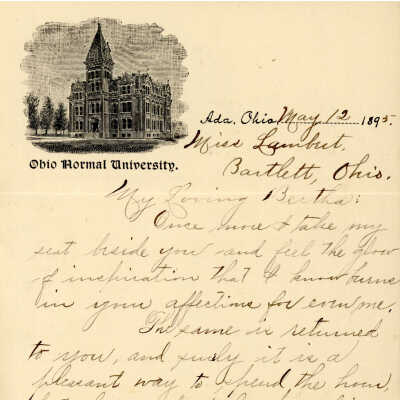 Ohio Normal University.
Ada, Ohio, May 12 1895.
Miss Lambert,
Bartlett, Ohio.
My Loving Bertha:
Once more I take my
seat beside you and feel the glow
of inspiration that I know burns
in your affections for even me.
The same is returned
to you, and surely it is a
pleasant way to spend the hour,